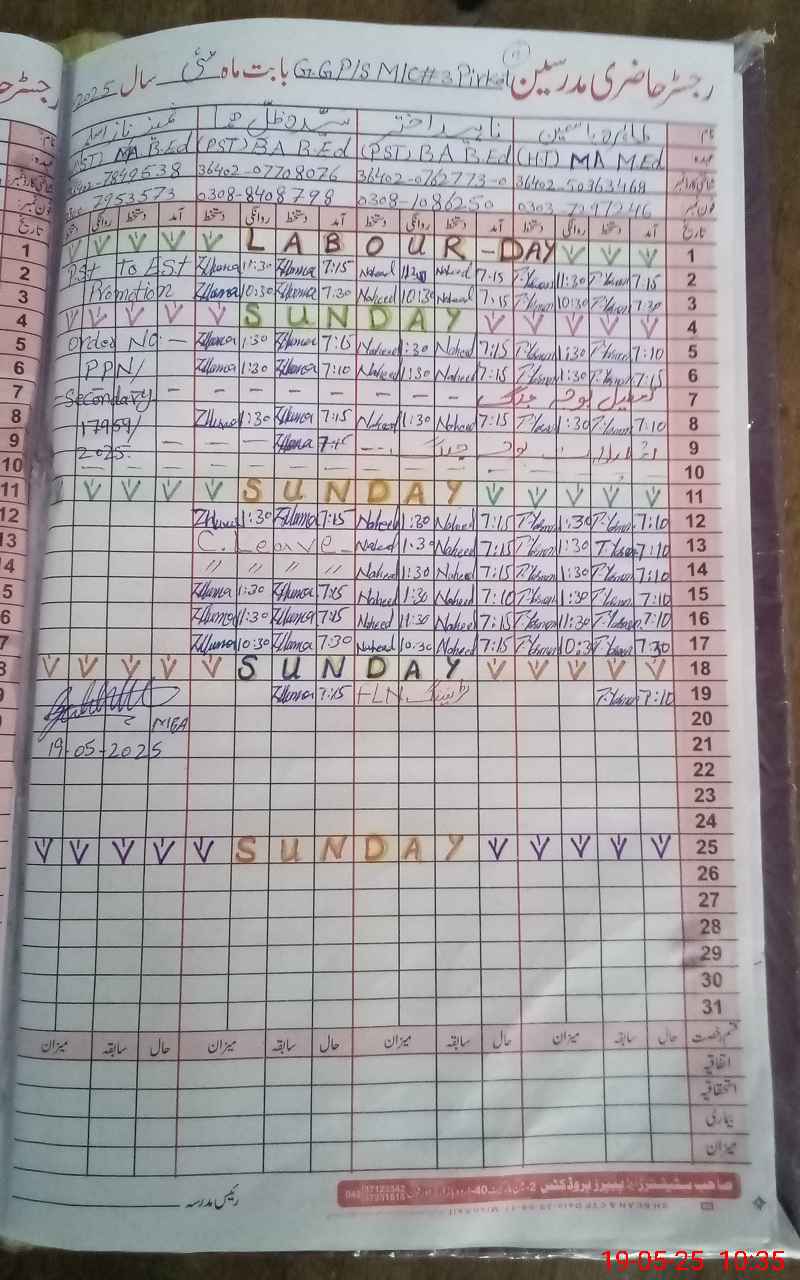 رجسٹر حاضری مدرسین G.G.P/S M/C # 3 Pirkot بابت ماہ مئی سال 2025
نام: طاہرہ یاسمین ناہید اختر
عہدہ: (HT) MA MEd (PST) BA B.Ed (PST) BA B.Ed (PST) MA B.Ed
36402-50363468 36402-0762773-0 36402-07708076 36402-7849538
فون نمبر: 0303-7297246 0308-1086250 0308-8408798 7953573
تاریخ آمد دستخط روانگی دستخط آمد دستخط روانگی دستخط آمد دستخط روانگی دستخط آمد دستخط روانگی دستخط تاریخ
1 LABOUR-DAY 1
2 Pst To EST ZHuma 11:30 ZHuma 7:15 Naheed 11:30 Naheed 7:15 T-Yasmin 11:30 T-Yasmin 7:15 2
3 Promotion ZHuma 10:30 ZHuma 7:30 Naheed 10:30 Naheed 7:15 T-Yasmin 10:30 T-Yasmin 7:30 3
4 SUNDAY 4
5 Order No - ZHuma 1:30 ZHuma 7:15 Naheed 1:30 Naheed 7:15 T-Yasmin 1:30 T-Yasmin 7:10 5
6 PPN/ ZHuma 1:30 ZHuma 7:10 Naheed 1:30 Naheed 7:15 T-Yasmin 1:30 T-Yasmin 7:15 6
7 Secondary - - - - - - - تعطیل بوجہ جنگ 7
8 17959/ ZHuma 1:30 ZHuma 7:15 Naheed 1:30 Naheed 7:15 T-Yasmin 1:30 T-Yasmin 7:10 8
9 2025 - - - ZHuma 7:15 بوجہ جنگ 9
10 10
11 SUNDAY 11
12 ZHuma 1:30 ZHuma 7:15 Naheed 1:30 Naheed 7:15 T-Yasmin 1:30 T-Yasmin 7:10 12
13 C.Leave - Naheed 1:30 Naheed 7:15 T-Yasmin 1:30 T-Yasmin 7:10 13
14 〃 〃 〃 〃 Naheed 1:30 Naheed 7:15 T-Yasmin 1:30 T-Yasmin 7:10 14
15 ZHuma 1:30 ZHuma 7:15 Naheed 1:30 Naheed 7:10 T-Yasmin 1:30 T-Yasmin 7:10 15
16 ZHuma 11:30 ZHuma 7:15 Naheed 11:30 Naheed 7:15 T-Yasmin 11:30 T-Yasmin 7:10 16
17 ZHuma 10:30 ZHuma 7:30 Naheed 10:30 Naheed 7:15 T-Yasmin 10:30 T-Yasmin 7:30 17
18 SUNDAY 18
19 ZHuma 7:15 FLN ٹریننگ T-Yasmin 7:10 19
MEA 20
19-05-2025 21
22
23
24
25 SUNDAY
26
27
28
29
30
31
قسم رخصت حال سابقہ میزان حال سابقہ میزان حال سابقہ میزان حال سابقہ میزان
اتفاقیہ
استحقاقیہ
بیماری
میزان
رئیس مدرسہ
19-05-25 10:35